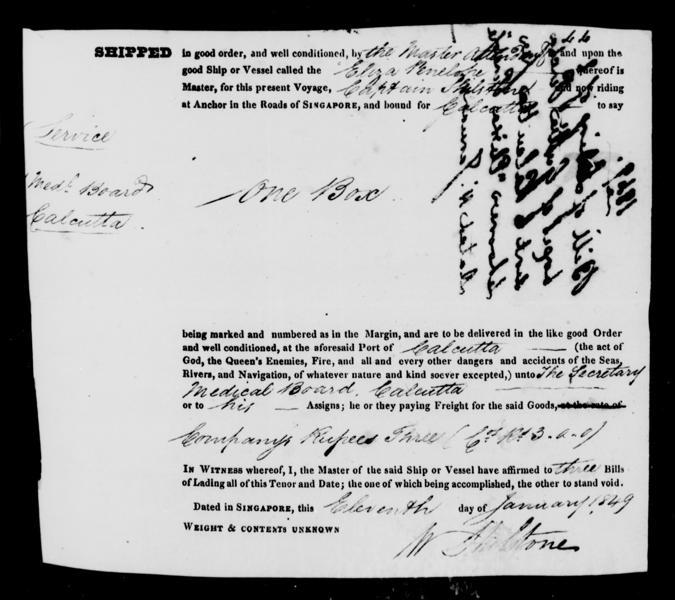 SHIPPED in good order, and well conditioned, by the Master Attendant and upon the
good Ship or Vessel called the Eliza Penelope whereof is
Master, for this present Voyage, Captain and now riding
at Anchor in the Roads of SINGAPORE, and bound for Calcutta to say
Service
Medl. Board
Calcutta
One Box
being marked and numbered as in the Margin, and are to be delivered in the like good Order
and well conditioned, at the aforesaid Port of Calcutta (the act of
God, the Queen's Enemies, Fire, and all and every other dangers and accidents of the Seas,
Rivers, and Navigation, of whatever nature and kind soever excepted,) unto The Secretary
Medical Board, Calcutta
or to his Assigns; he or they paying Freight for the said Goods, at the rate of
Company's Rupees Three (Co. Rs 3-0-0)
IN WITNESS whereof, I, the Master of the said Ship or Vessel have affirmed to three Bills
of Lading all of this Tenor and Date; the one of which being accomplished, the other to stand void.
Dated in SINGAPORE, this Eleventh day of January 1849
WEIGHT & CONTENTS UNKNOWN
W